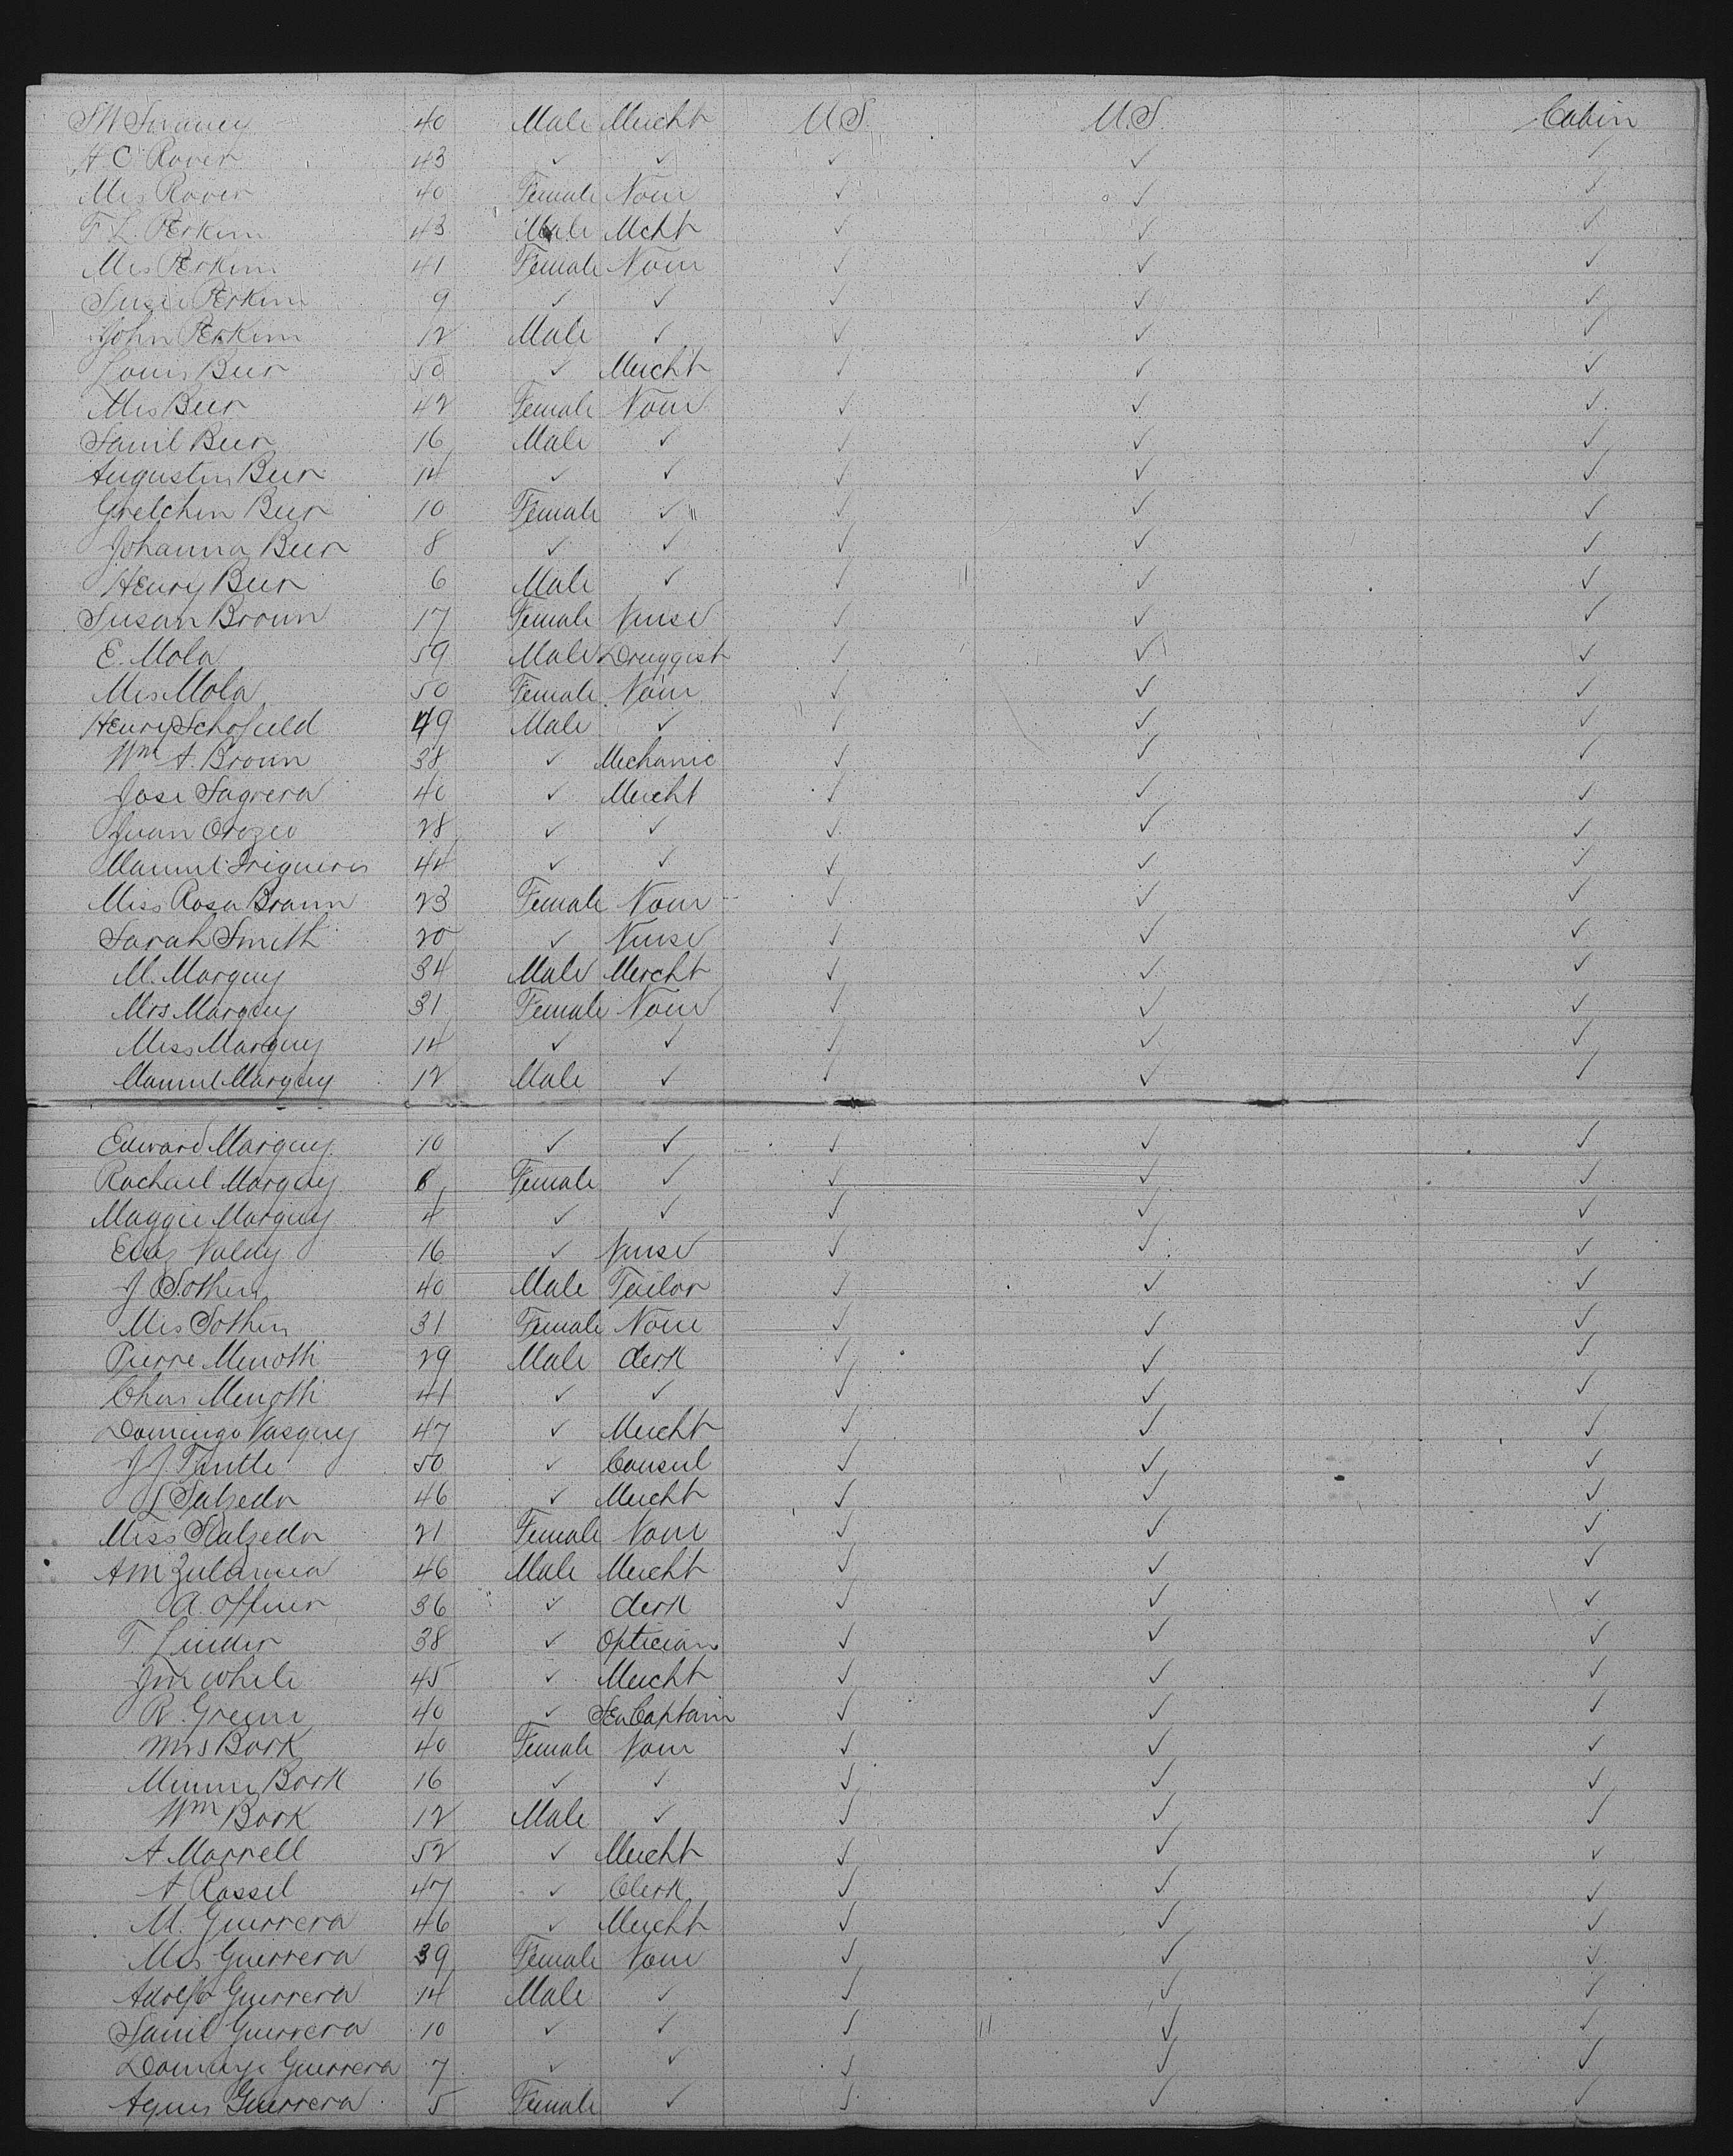 40 Male Mercht U.S. U.S. Cabin
H C Rover 43 ✓ ✓ ✓ ✓ ✓
Mrs Rover 40 Female None ✓ ✓ ✓
F L. Perkins 43 Male Mcht ✓ ✓ ✓
Mrs Perkins 41 Female None ✓ ✓ ✓
Susie Perkins 9 ✓ ✓ ✓ ✓ ✓
John Perkins 12 Male ✓ ✓ ✓ ✓
Louis Beer 50 ✓ Mercht ✓ ✓ ✓
Mrs Beer 42 Female None ✓ ✓ ✓
Saml Beer 16 Male ✓ ✓ ✓ ✓
Augustus Beer 14 ✓ ✓ ✓ ✓ ✓
Gretchen Beer 10 Female ✓ ✓ ✓ ✓
Johanna Beer 8 ✓ ✓ ✓ ✓ ✓
Henry Beer 6 Male ✓ ✓ ✓ ✓
Susan Brown 17 Female Nurse ✓ ✓ ✓
E. Mola 59 Male Druggist ✓ ✓ ✓
Mrs Mola 50 Female None ✓ ✓ ✓
Henry Schofield 49 Male ✓ ✓ ✓ ✓
Wm A. Brown 38 ✓ Mechanic ✓ ✓ ✓
Jose Sagrera 40 ✓ Mercht ✓ ✓ ✓
Juan Orozco 28 ✓ ✓ ✓ ✓ ✓
Manuel Trigueros 44 ✓ ✓ ✓ ✓ ✓
Miss Rosa Braun 23 Female None ✓ ✓ ✓
Sarah Smith 20 ✓ Nurse ✓ ✓ ✓
M. Marquy 34 Male Mercht ✓ ✓ ✓
Mrs Marquy 31 Female None ✓ ✓ ✓
Miss Marquy 14 ✓ ✓ ✓ ✓ ✓
Manuel Marquy 12 Male ✓ ✓ ✓ ✓
Edward Marquy 10 ✓ ✓ ✓ ✓ ✓
Rachael Marquy 6 Female ✓ ✓ ✓ ✓
Maggie Marquy 4 ✓ ✓ ✓ ✓ ✓
16 ✓ Nurse ✓ ✓ ✓
J Sothern 40 Male Tailor ✓ ✓ ✓
Mrs Sothern 31 Female None ✓ ✓ ✓
Pierre Menotti 29 Male Clerk ✓ ✓ ✓
Chas Menotti 41 ✓ ✓ ✓ ✓ ✓
Domingo Vasquez 47 ✓ Mercht ✓ ✓ ✓
J J 50 ✓ Consul ✓ ✓ ✓
L Salzedo 46 ✓ Mercht ✓ ✓ ✓
Miss Salzedo 21 Female None ✓ ✓ ✓
A M 46 Male Mercht ✓ ✓ ✓
A. 36 ✓ Clerk ✓ ✓ ✓
T. Linder 38 ✓ Optician ✓ ✓ ✓
J M White 45 ✓ Mercht ✓ ✓ ✓
R. Green 40 ✓ Sea Captain ✓ ✓ ✓
Mrs Bork 40 Female None ✓ ✓ ✓
Minnie Bork 16 ✓ ✓ ✓ ✓ ✓
Wm Bork 12 Male ✓ ✓ ✓ ✓
A Morrell 52 ✓ Mercht ✓ ✓ ✓
A Rossel 47 ✓ Clerk ✓ ✓ ✓
M. Guerrera 46 ✓ Mercht ✓ ✓ ✓
Mrs Guerrera 39 Female None ✓ ✓ ✓
Adolfo Guerrera 14 Male ✓ ✓ ✓ ✓
Saml Guerrera 10 ✓ ✓ ✓ ✓ ✓
Domingo Guerrera 7 ✓ ✓ ✓ ✓ ✓
Agnes Guerrera 5 Female ✓ ✓ ✓ ✓